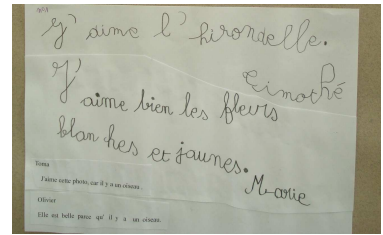 J'aime l'hirondelle.
Timothé
J'aime bien les fleurs
blan hes et jaunes.
Marie
Toma
J'aime cette photo, car il y a un oiseau.
Olivier
Elle est belle parce qu' il y a un oiseau.